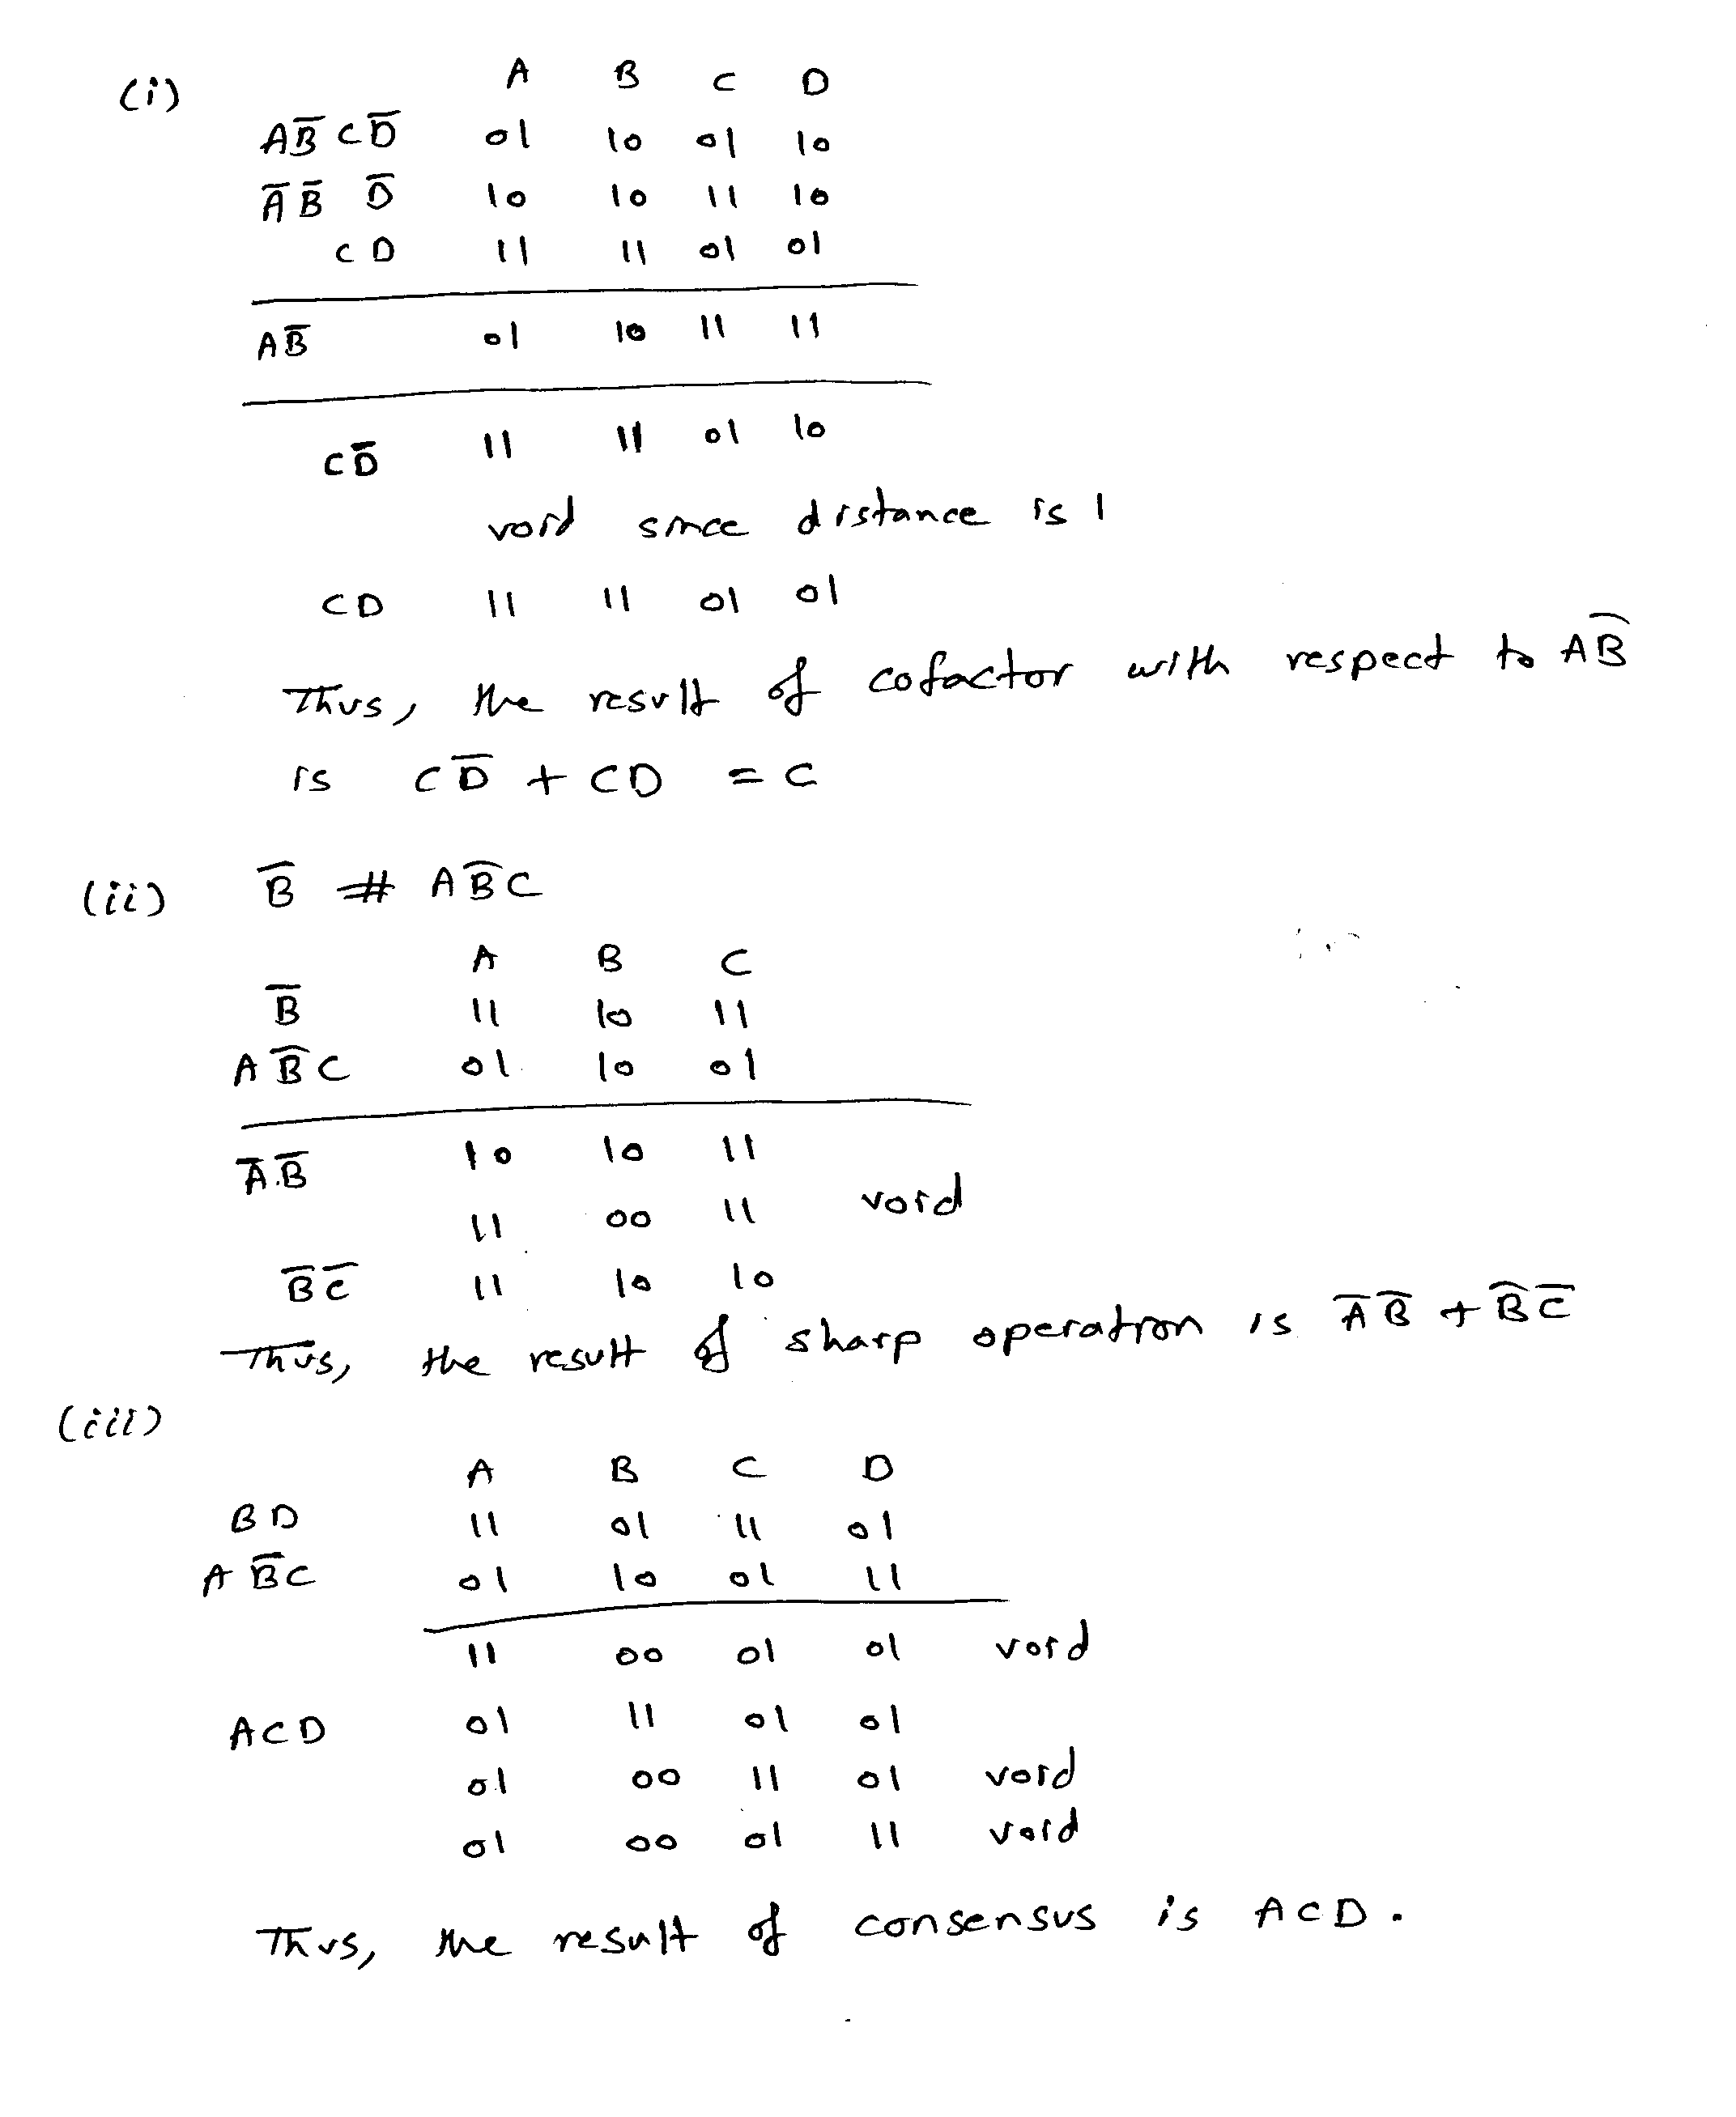 (i) A B C D
AB̅CD̅ 01 10 01 10
A̅B̅ D̅ 10 10 11 10
CD 11 11 01 01
AB̅ 01 10 11 11
CD̅ 11 11 01 10
void since distance is 1
CD 11 11 01 01
Thus, the result of cofactor with respect to AB̅
is CD̅ + CD = C
(ii) B̅ # AB̅C
A B C
B̅ 11 10 11
AB̅C 01 10 01
A̅.B̅ 10 10 11
11 00 11 void
B̅C̅ 11 10 10
Thus, the result of sharp operation is A̅B̅ + B̅C̅
(iii)
A B C D
BD 11 01 11 01
AB̅C 01 10 01 11
11 00 01 01 void
ACD 01 11 01 01
01 00 11 01 void
01 00 01 11 void
Thus, the result of consensus is ACD.